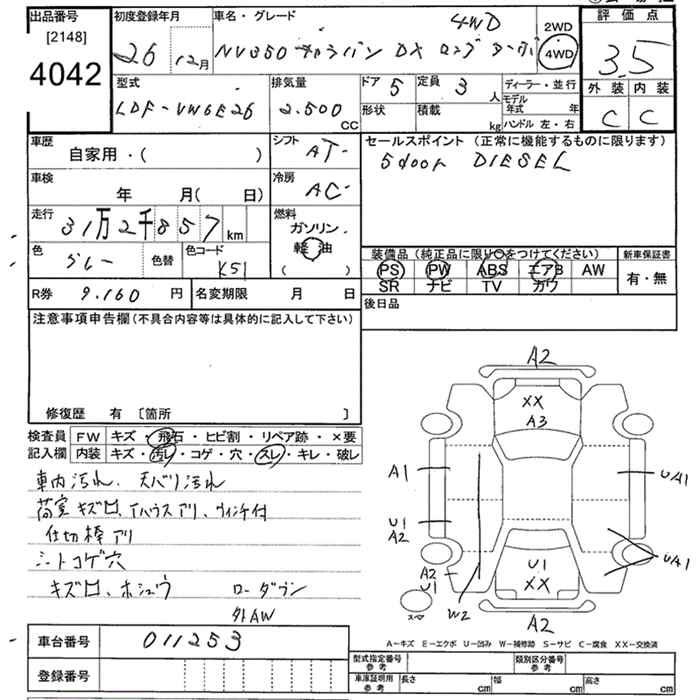 出品番号
[2148]
4042
初度登録年月
26 12月
車名・グレード
NV350 キャラバン DX ロング ターボ
4WD
2WD
4WD
評価点
3.5
外装 内装
C C
型式
LDF-VW6E26
排気量
2.500 CC
ドア 5
定員 3 人
形状
積載 kg
ディーラー・並行
モデル年式 年
ハンドル 左・右
車歴
自家用・( )
シフト
AT
セールスポイント(正常に機能するものに限ります)
5door DIESEL
車検
年 月( 日)
冷房
AC
走行
31万2千857km
燃料
ガソリン
軽油
( )
色
グレー
色替
色コード
K51
装備品(純正品に限り○をつけてください)
PS PW ABS エアB AW
SR ナビ TV カワ
新車保証書
有・無
R券 9.160 円
名変期限 月 日
後日品
注意事項申告欄(不具合内容等は具体的に記入して下さい)
修復歴 有 [箇所 ]
検査員記入欄
FW キズ・飛石・ヒビ割・リペア跡・×要
内装 キズ・汚レ・コゲ・穴・スレ・キレ・破レ
車内汚れ、天バリ汚れ
荷室キズロ、
仕切棒アリ
シートコゲ穴
キズロ、ホシュウ ローダウン
外AW
A2
XX
A3
A1
UA1
U1
A2
U1
XX
UA1
A2
U1
W2
A2
A-キズ E-エクボ U-凹み W-補修跡 S-サビ C-腐食 XX-交換済
車台番号 011253
登録番号
型式指定番号 参考
類別区分番号 参考
車庫証明用 参考
長さ cm 幅 cm 高さ cm